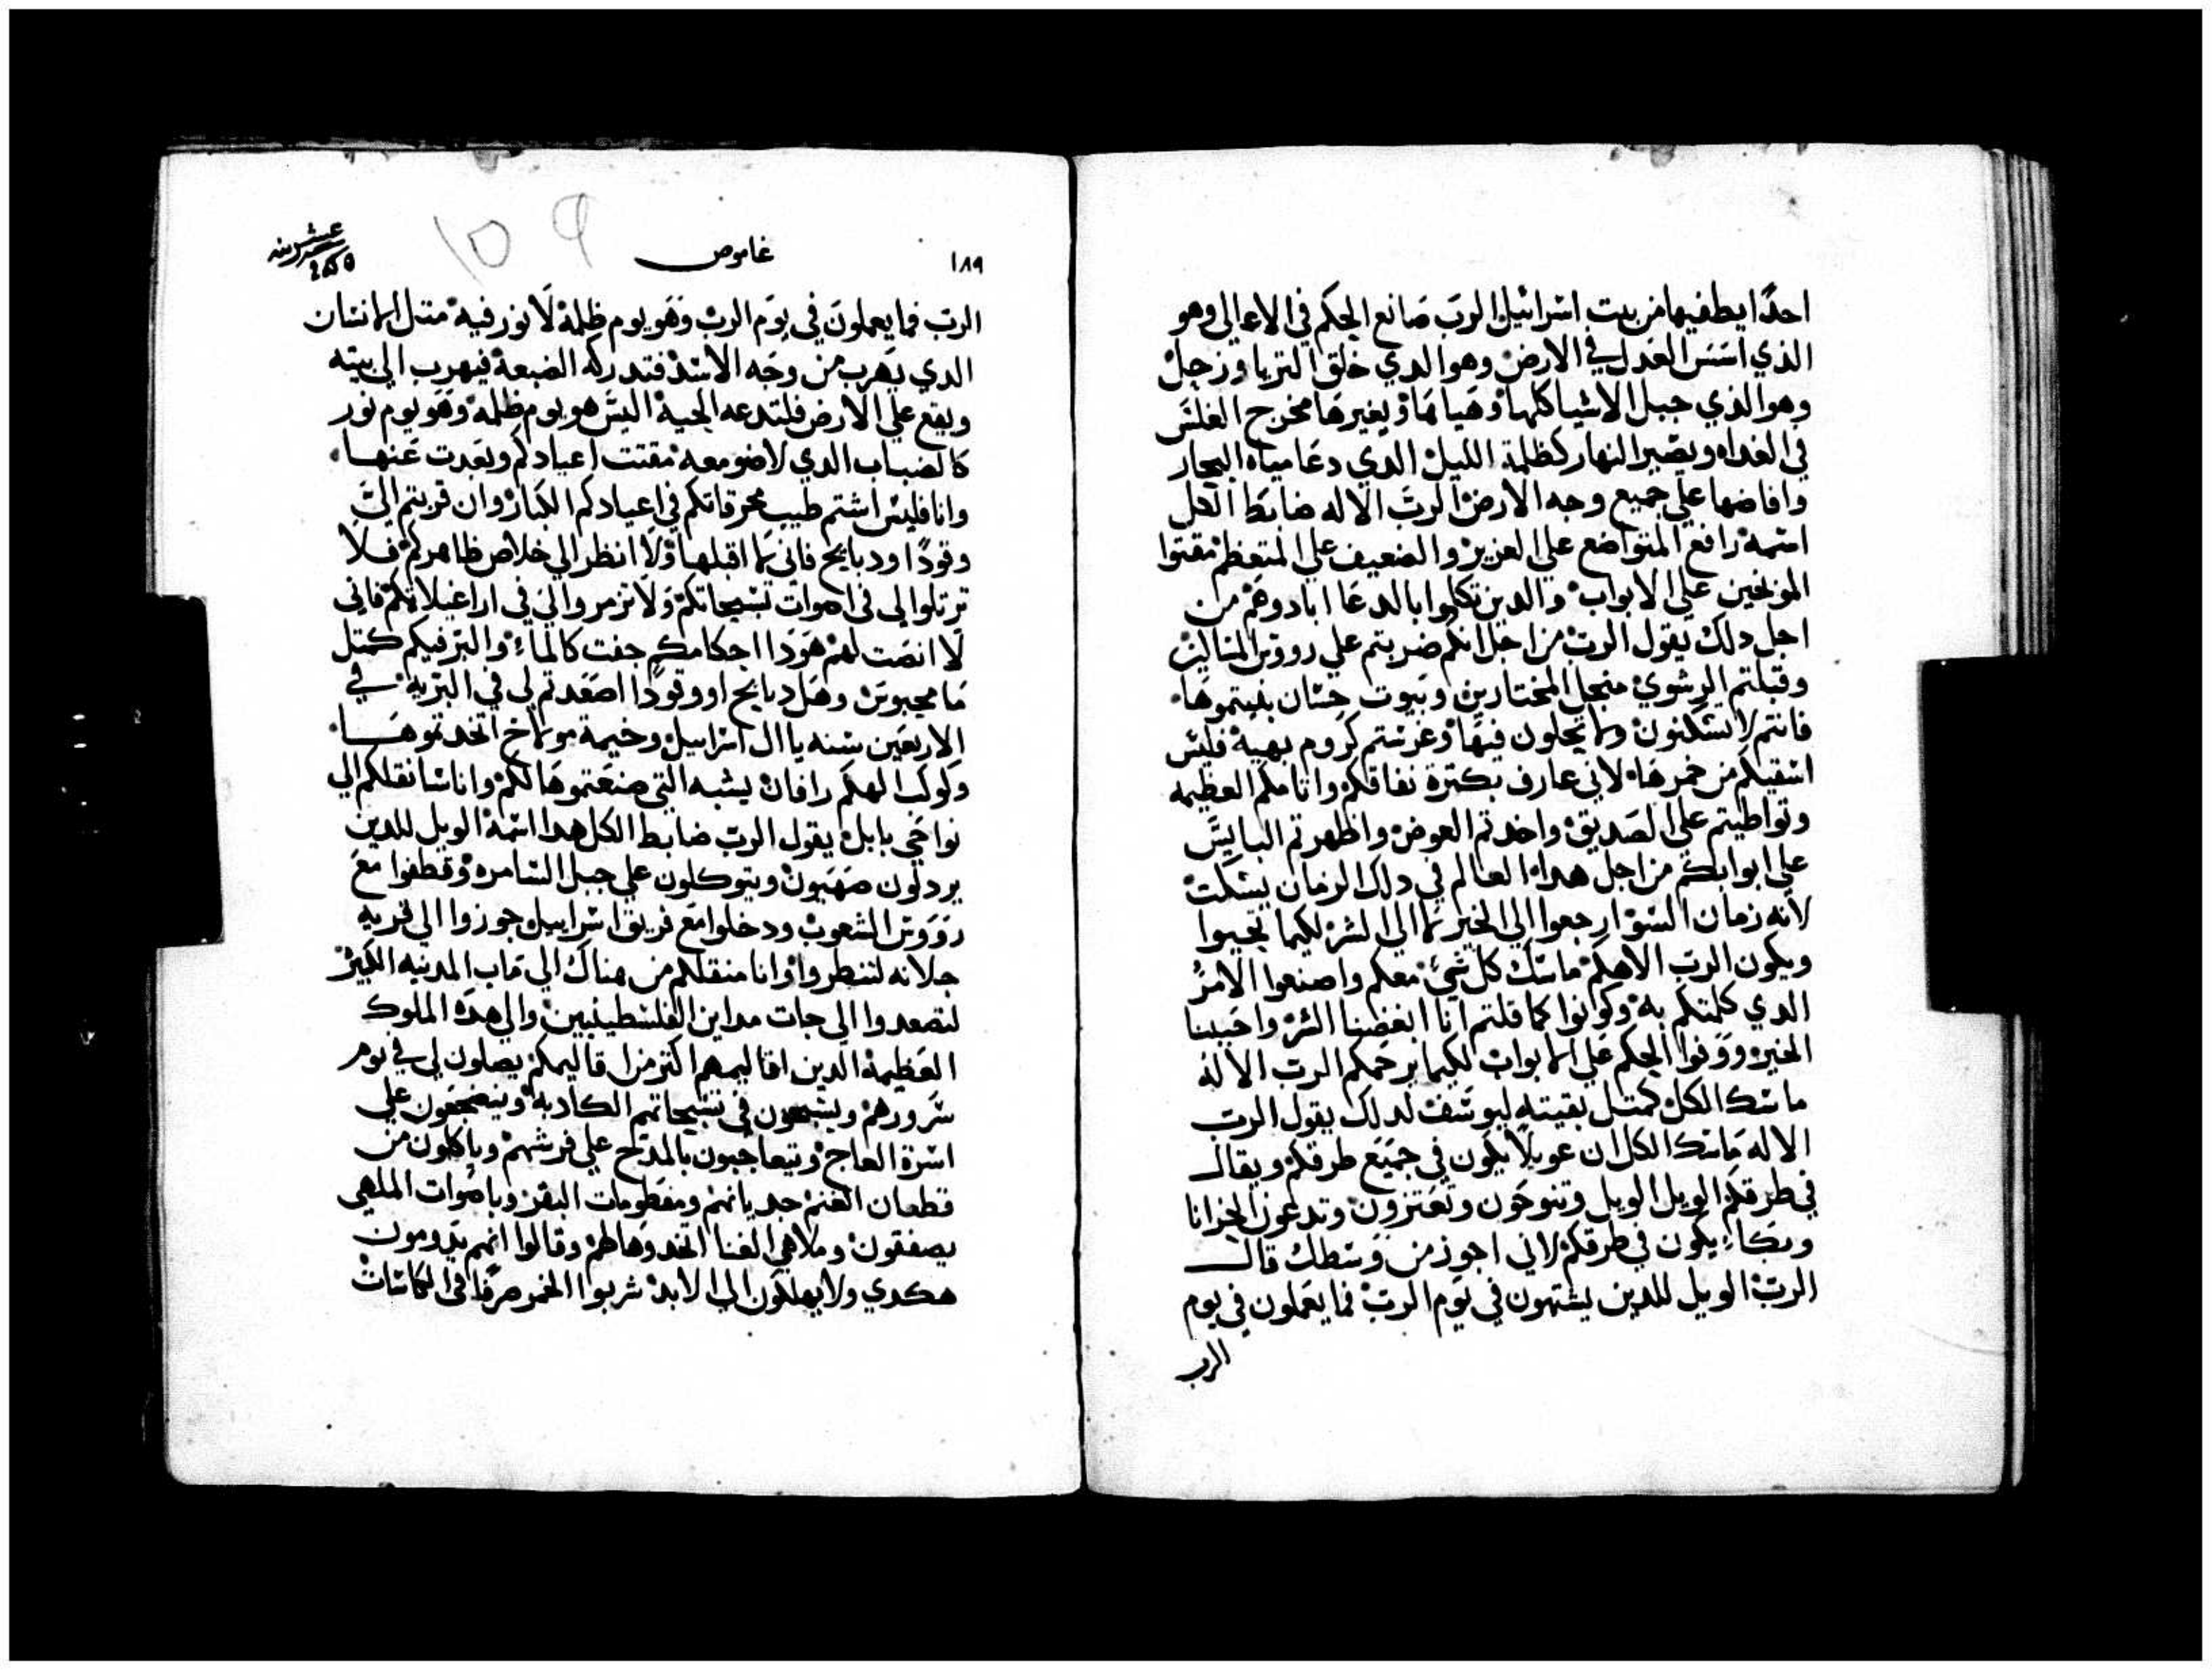 احدًا يطفيها من بيت اسرائيل الرب صانع الحكم في الاعالي وهو
الذي اسس العدل في الارض وهو الدي خلق التريا وزحل
وهو الذي جبل الاشيا كلها وهياها ويغيرها مخرج الغلس
في الغداه ويصير النهار كظلمة الليل الدي دعا مياه البحار
وافاضها علي جميع وجه الارض الرب الاله ضابط الكل
اسمه رافع المتواضع علي العزيز والضعيف علي المتعظم مقتوا
الموبخين علي الابواب والدين تكلموا بالدعا ابادوهم من
اجل دلك يقول الرب من اجل انكم ضربتم علي رووس المساكين
وقبلتم الرشوي منجل المختارين وبيوت حسان بنيتموها
فانتم لا تسكنون ولا تحلون فيها وغرستم كروم بهية فليس
اسقيكم من خمرها لاني عارف بكترة نفاقكم واتامكم العظيمه
وتواطيتم علي الصديق واخدتم العوض واظهرتم البايس
علي ابوابكم من اجل هدا العالم في دلك الزمان يسكت
لانه زمان السو ارجعوا الي الخير لا الي الشر لكيما تحيوا
ويكون الرب الاهكم ماسك كل شي معكم واصنعوا الامر
الدي كلمتكم به وكونوا كما قلتم انا ابغضنا الشر واحببنا
الخير ووقفوا الحكم علي الابواب لكيما يرحمكم الرب الاله
ماسك الكل كمتل بقيته ليوسف لدلك يقول الرب
الاله ماسك الكل ان عويلًا يكون في جميع طرقكم ويقال
في طرقكم الويل الويل وتنوحون وتعتزون وتدعون الحزانا
وبكاء يكون في طرقكم لاني اجوز من وسطك قال
الرب الويل للدين يشتهون في يوم الرب فما يعملون في يوم
الرب
١٨٩
غاموص
الرب فما يعملون في يوم الرب وهو يوم ظلمة لا نور فيه متل الانسان
الدي يهرب من وجه الاسد فتدركه الضبعة فيهرب الي بيته
ويقع علي الارض فلتدعه الحية اليس هو يوم ظلمه وهو يوم نور
كالضباب الدي لا ضو معه مقتت اعيادكم وبعدت عنها
وانا فليس اشتم طيب محرقاتكم في اعيادكم الكبار وان قربتم الي
وقودًا ودبايح فاني لا اقبلها ولا انظر الي خلاص ظاهركم فلا
ترتلوا لي في اصوات تسبيحاتكم ولا تزمروا لي في اراغيلاتكم فاني
لا انصت لهم هودا احكامكم جفت كالماء والبر فيكم كمتل
ما محبوس وهل دبايح او وقودًا اصعدتم لي في البريه في
الاربعين سنه يا ال اسراييل وخيمة مولاخ اتخدتموها
وكوكب الهكم رافان يشبه التي صنعتموها لكم وانا سانقلكم الي
نواحي بابل يقول الرب ضابط الكل هدا اسمه الويل للدين
يردلون صهيون ويتوكلون علي جبل السامره وقطفوا مع
رووس الشعوب ودخلوا مع فريق اسراييل جوزوا الي قريه
جلانه لتنطروا وانا منقلكم من هناك الي ماب المدينه الكبير
لتصعدوا الي جات مداين الفلسطينيين والي هده الملوك
العظيمة الدين اقاليمهم اكتر من اقاليمكم يصلون لي في يوم
سرورهم ويسبحون في تسبيحاتهم الكادبه وينضجعون علي
اسرة العاج ويتعاجبون بالمدح علي فرشهم وياكلون من
قطعان الغنم جديانهم ومفطومات البقر وباصوات الملهي
يصفقون وملاهي الغنا اتخدوها لهم وقالوا انهم يدومون
هكدي ولا يهلكون الي الابد شربوا الخمر صرفًا في الكاسات